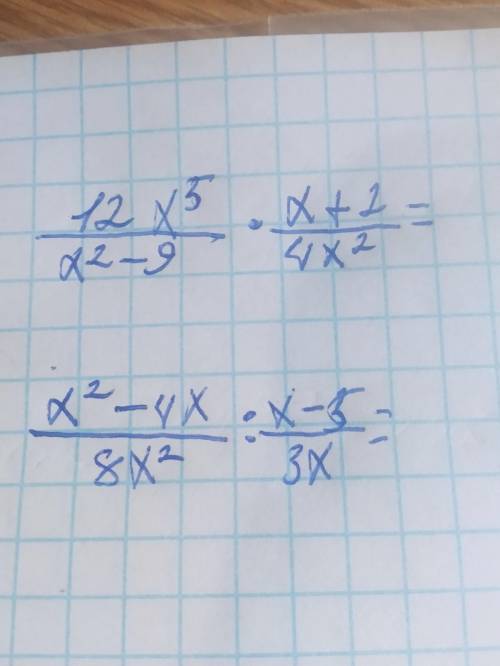 12x⁵/(x²-9) · (x+1)/(4x²) =
(x²-4x)/(8x²) : (x-5)/(3x) =